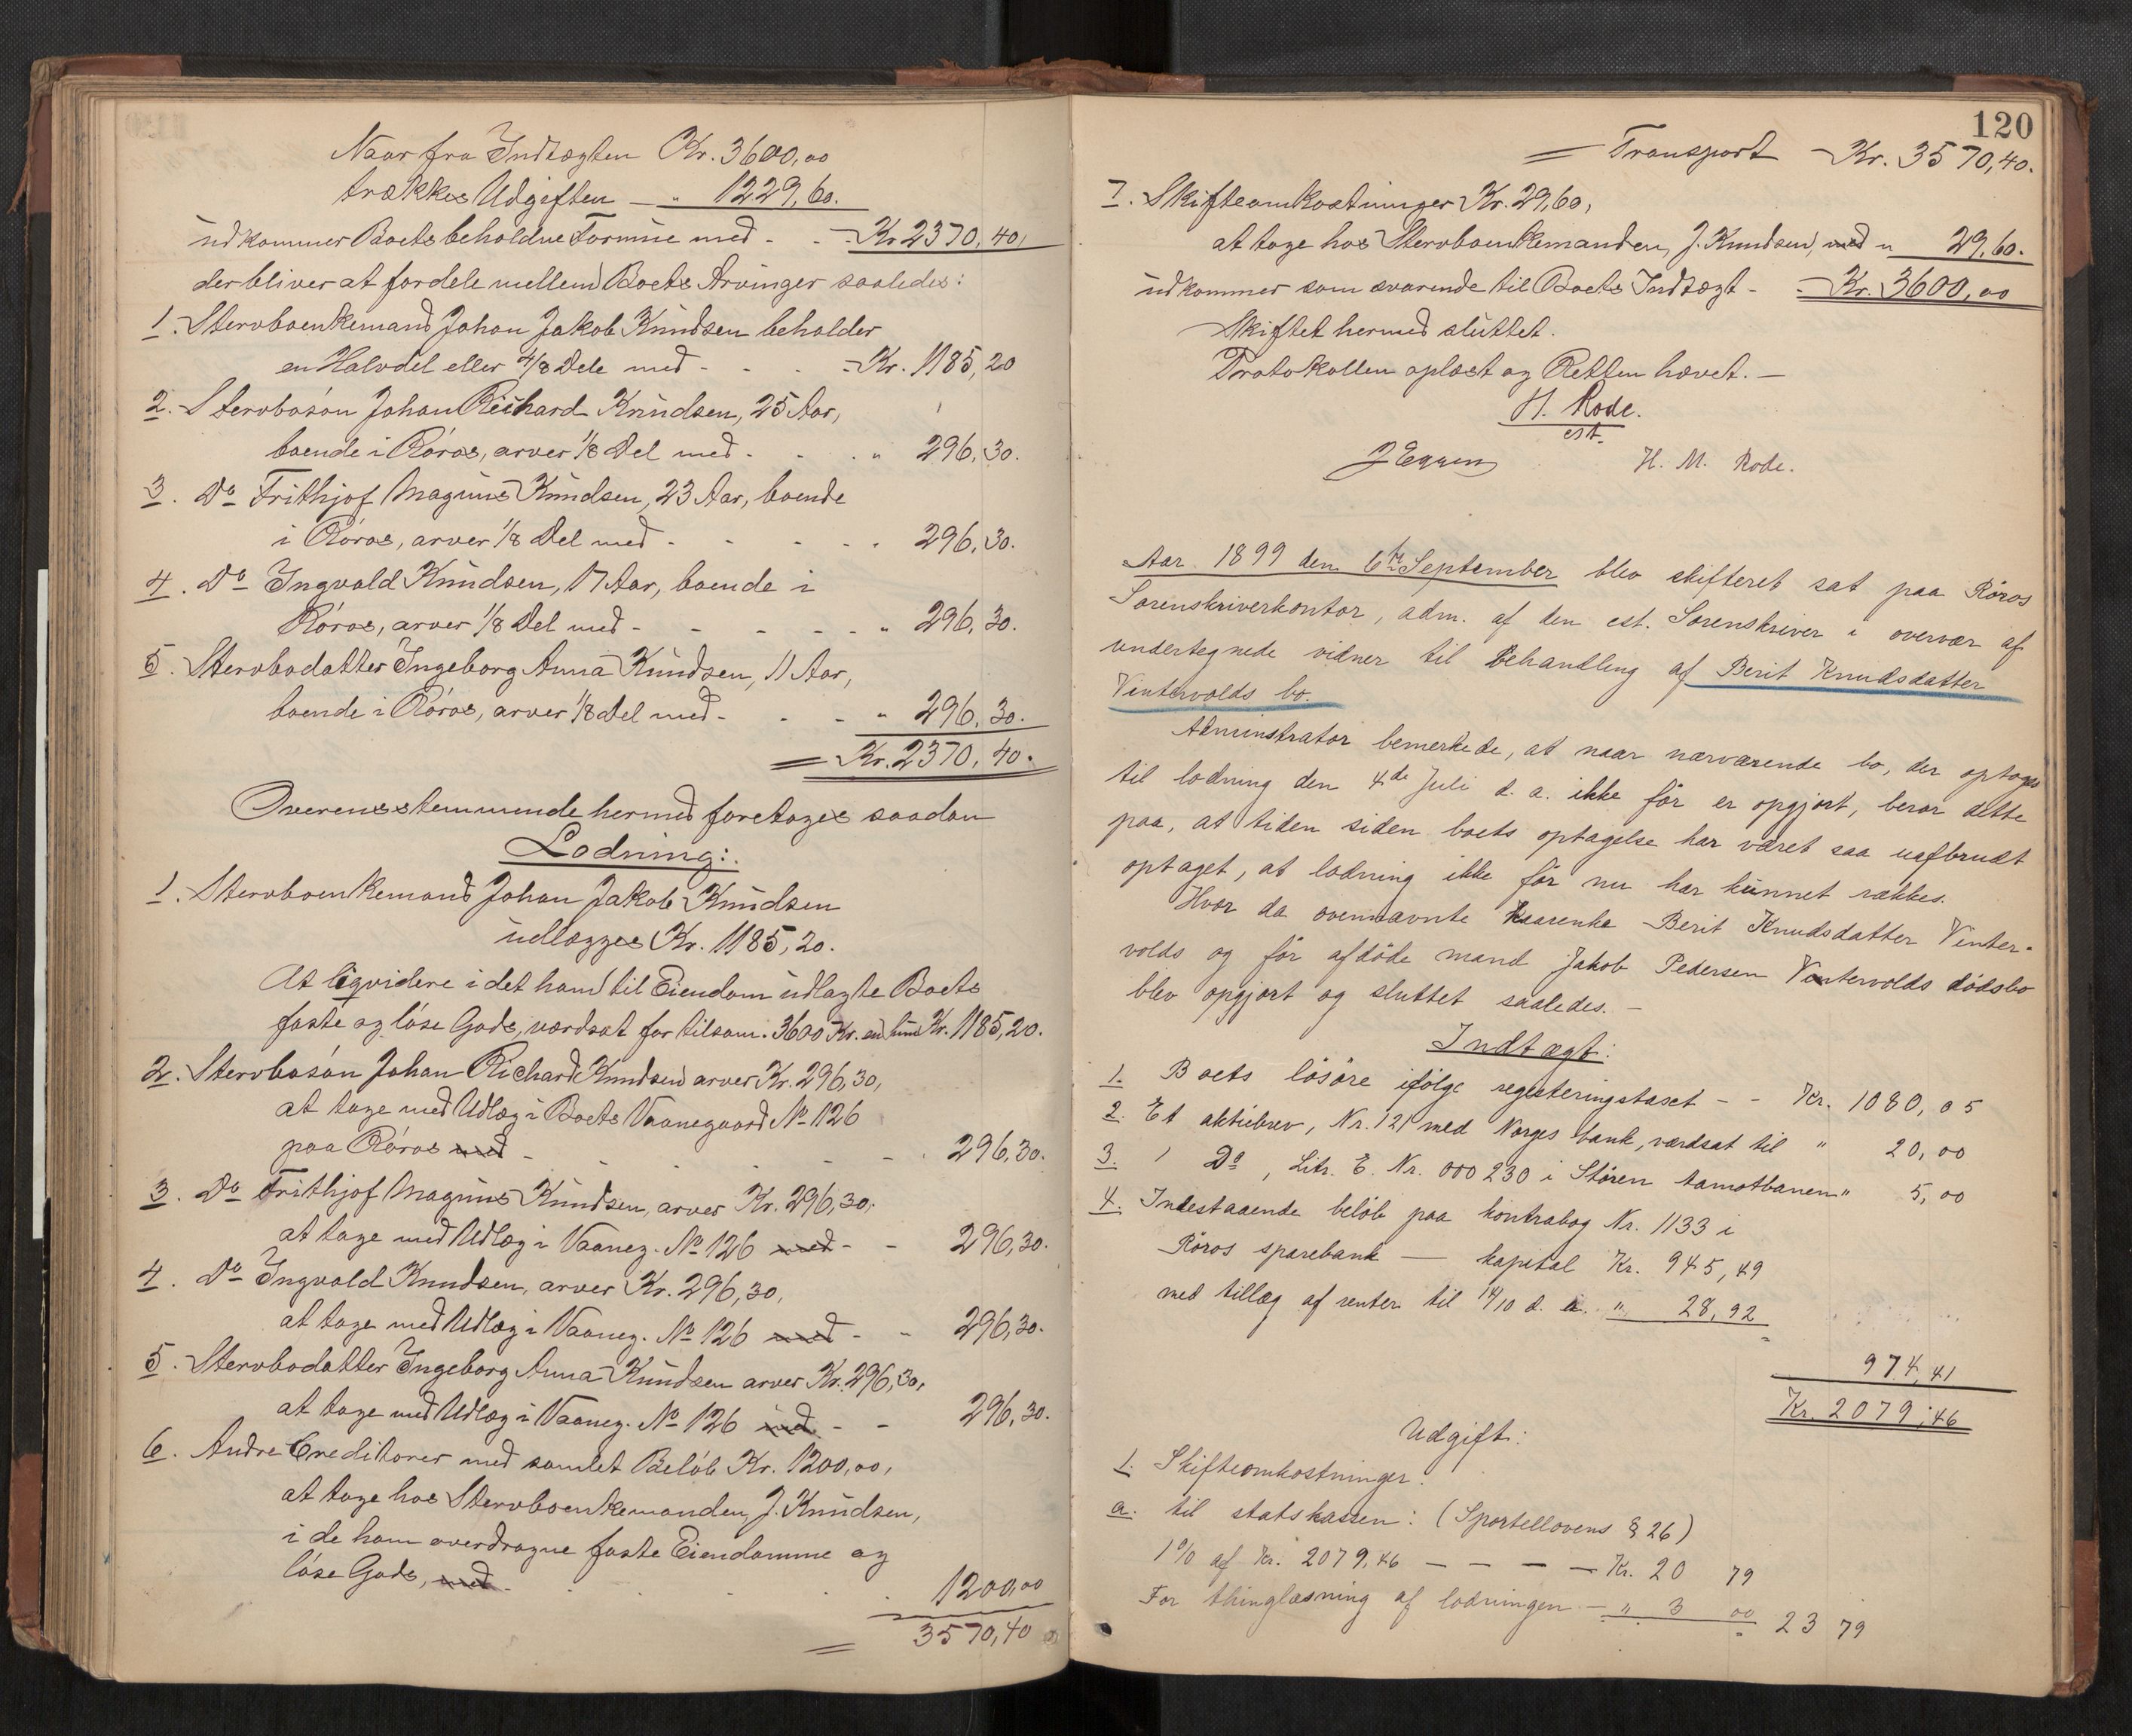 Naar fra Indtægten Kr. 3600,00
trækkes Udgiften — " 1229,60.
udkommer Boets beholdne Formue med - - - Kr. 2370,40,
der bliver at fordele mellem Boets Arvinger saaledes:
1. Stervboenkemand Johan Jakob Knudsen beholder
en Halvdel eller 4/8 Dele med - - - - Kr. 1185,20
2. Stervbosön Johan Richard Knudsen, 25 Aar,
boende i Röros, arver 1/8 Del med - - - " 296,30.
3. Do Frithjof Magnus Knudsen, 23 Aar, boende
i Röros, arver 1/8 Del med - - - - - " 296,30.
4. Do Ingvald Knudsen, 17 Aar, boende i
Röros, arver 1/8 Del med - - - - - - " 296,30.
5. Stervbodatter Ingeborg Anna Knudsen, 11 Aar,
boende i Röros, arver 1/8 Del med - - - - " 296,30.
= Kr. 2370,40.
Overensstemmende hermed foretages saadan
Lodning:
1. Stervboenkemand Johan Jakob Knudsen
udlægges Kr. 1185,20.
At liqvidere i det ham til Eiendom udlagte Boets
faste og löse Gods, værdsat for tilsam. 3600 Kr. Kr. 1185,20.
2. Stervbosön Johan Richard Knudsen arver Kr. 296,30,
at tage med Udlæg i Boets Vaanegaard No 126
paa Röros med - - - - - - 296,30.
3. Do Frithjof Magnus Knudsen, arver Kr. 296,30,
at tage med Udlæg i Vaaneg. No 126 med - - 296,30.
4. Do Ingvald Knudsen, arver Kr. 296,30,
at tage med Udlæg i Vaaneg. No 126 med - - 296,30.
5. Stervbodatter Ingeborg Anna Knudsen arver Kr. 296,30,
at tage med Udlæg i Vaaneg. No 126 med - - 296,30.
6. Andre Creditorer med samlet Belöb Kr. 1200,00,
at tage hos Stervboenkemanden, J. Knudsen,
i de ham overdragne faste Eiendomme og
löse Gods, med - - - - 1200,00
= 3570,40
120
= Transport - Kr. 3570,40.
7. Skifteomkostninger Kr. 29,60,
at tage hos Stervboenkemanden, J. Knudsen, med " 29,60.
udkommer som svarende til Boets Indtægt - - Kr. 3600,00
Skiftet hermed sluttet.
Protokollen oplæst og Retten hævet. —
H. Rode.
est.
J Eggen H. M. Rode.
Aar 1899 den 6te September blev skifteret sat paa Röros
Sorenskriverkontor, adm. af den est. Sorenskriver i overvær af
undertegnede vidner til Behandling af Berit Knudsdatter
Vintervolds bo.
Adminstrator bemerkede, at naar nærværende bo, der optoges
til lodning den 4de Juli d. a. ikke för er opgjort, beror dette
paa, at tiden siden boets optagelse har været saa uafbrudt
optaget, at lodning ikke för nu har kunnet rækkes.
Hvor da ovennævnte kaarenke Berit Knudsdatter Vinter-
volds og för afdöde mand Jakob Pedersen Vintervolds dödsbo
blev opgjort og sluttet saaledes. —
Indtægt:
1. Boets lösöre ifölge registeringstaxt - - Kr. 1080,05
2. Et aktiebrev, Nr. 121 med Norges bank, værdsat til " 20,00
3. 1 Do, Litr. E. Nr. 000230 i Stören Aamotbanen " 5,00
4. Indestaaende belöb paa kontrabog Nr. 1133 i
Röros sparebank — kapital Kr. 945,49
med tillæg af renter til 14/10 d. a. " 28,92
974,41
Kr. 2079,46
Udgift:
1. Skifteomkostninger.
a. til statskassen: (Sportellovens § 26)
1% af Kr. 2079,46 — — — — Kr. 20 79
For thinglæsning af lodningen — " 3 00 23 79